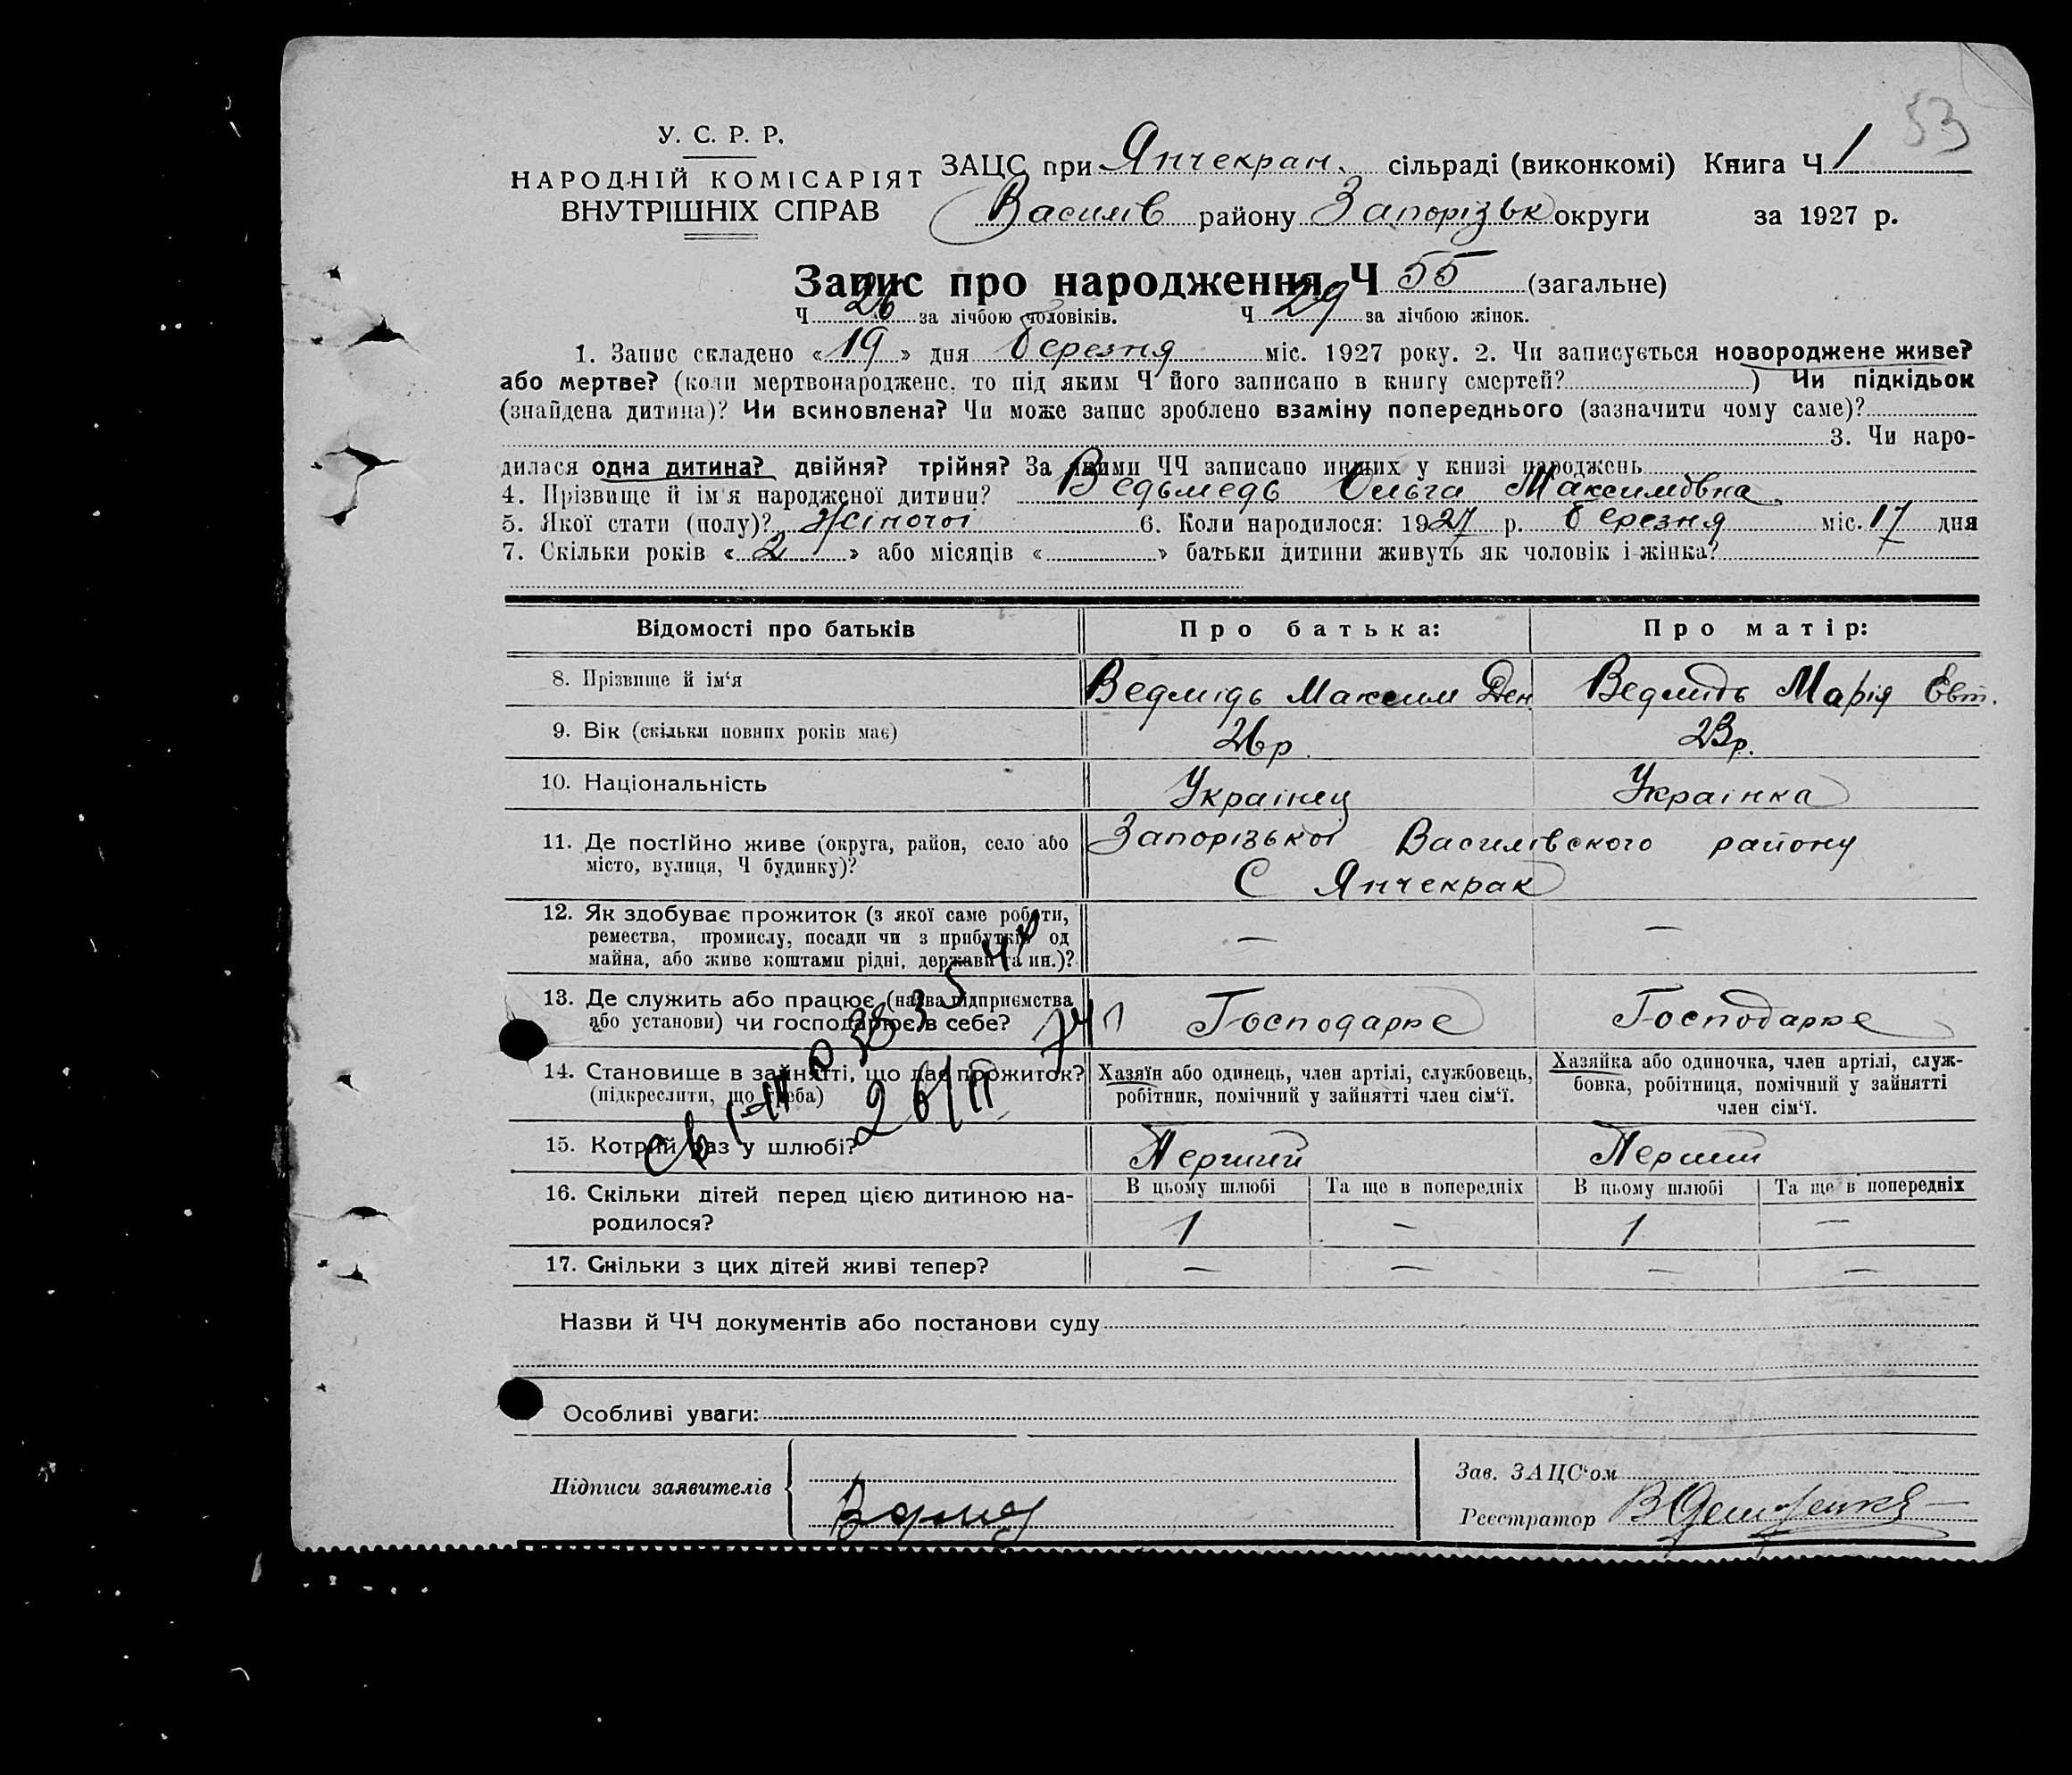 53
У. С. Р. Р.
НАРОДНІЙ КОМІСАРІЯТ
ВНУТРІШНІХ СПРАВ
ЗАЦС при Янчекран. сільраді (виконкомі) Книга Ч 1
Василів району Запорізьк округи за 1927 р.
Запис про народження Ч 55 (загальне)
Ч 26 за лічбою чоловіків. Ч 29 за лічбою жінок.
1. Запис складено «19» дня березня міс. 1927 року. 2. Чи записується новороджене живе?
або мертве? (коли мертвонароджене, то під яким Ч його записано в книгу смертей? ) Чи підкідьок
(знайдена дитина)? Чи всиновлена? Чи може запис зроблено взаміну попереднього (зазначити чому саме)?
3. Чи наро-
дилася одна дитина? двійня? трійня? За якими ЧЧ записано инших у книзі народжень
4. Прізвище й ім'я народженої дитини? Ведьмедь Ольга Максимовна
5. Якої стати (полу)? жіночоі 6. Коли народилося: 1927 р. березня міс. 17 дня
7. Скільки років «2» або місяців « » батьки дитини живуть як чоловік і жінка?
Відомості про батьків Про батька: Про матір:
8. Прізвище й ім‘я Ведмідь Максим Ден Ведмідь Марія Евт.
9. Вік (скільки повних років має) 26р. 23р.
10. Національність Украінец Украінка
11. Де постійно живе (округа, район, село або
місто, вулиця, Ч будинку)?
Запорізькоі Василівского району
С Янчекрак
12. Як здобуває прожиток (з якої саме роботи,
ремества, промислу, посади чи з прибутків од
майна, або живе коштами рідні, держави та ин.)?
— —
13. Де служить або працює (назва підприємства
або установи) чи господарює в себе?
Господарює Господарює
14. Становище в зайнятті, що дає прожиток?
(підкреслити, що треба)
Хазяїн або одинець, член артілі, службовець,
робітник, помічний у зайнятті член сім‘ї.
Хазяйка або одиночка, член артілі, служ-
бовка, робітниця, помічний у зайнятті
член сім‘ї.
26/II
15. Котрий раз у шлюбі? Перший Перший
16. Скільки дітей перед цією дитиною на-
родилося?
В цьому шлюбі Та ще в попередніх В цьому шлюбі Та ще в попередніх
1 — 1 —
17. Скільки з цих дітей живі тепер? — — — —
Назви й ЧЧ документів або постанови суду
Особливі уваги:
Підписи заявителів
Зав. ЗАЦС‘ом
Реєстратор